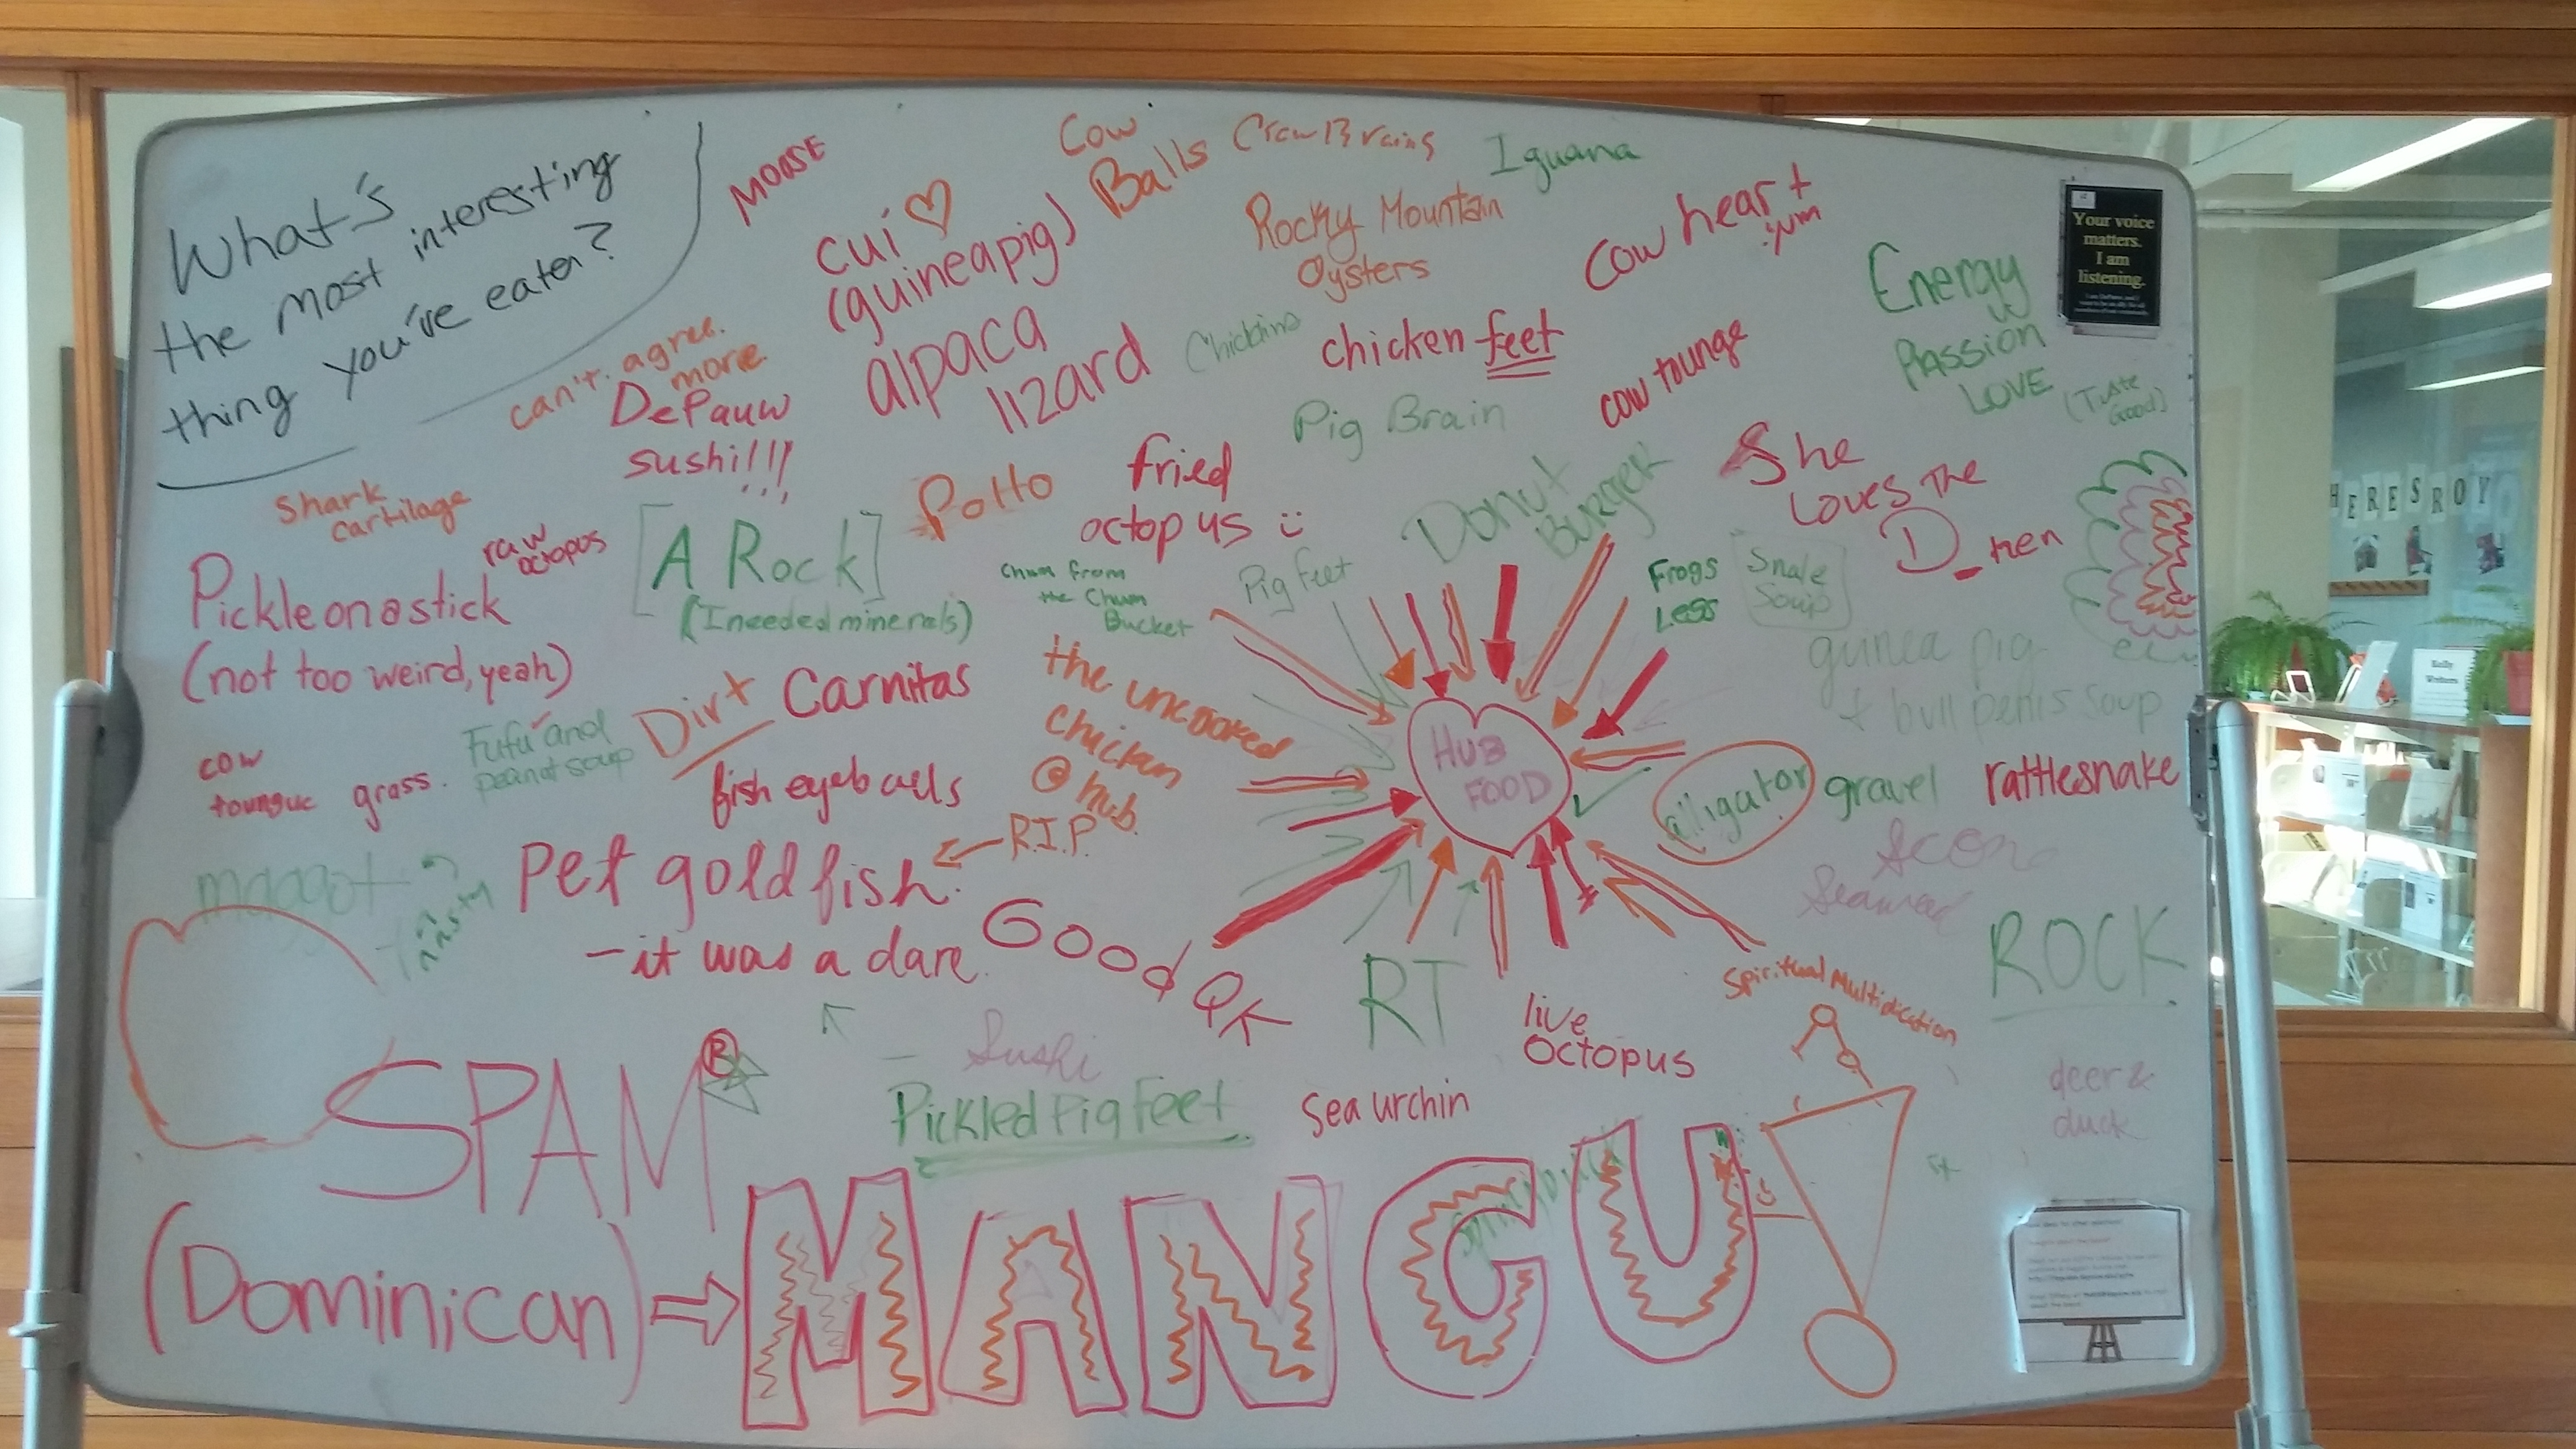 What's
the most interesting
thing you've eaten?
MOOSE
Cow
Balls
Iguana
cui
(guineapig)
Rocky Mountain
Oysters
Cow heart
yum
Your voice
matters.
I am
listening.
Energy
Passion
LOVE
(Taste
Good)
can't agree.
more
DePauw
sushi!!!
alpaca
lizard
chicken feet
cow tounge
Pig Brain
Shark
cartilage
raw
octopus
[A Rock]
(I needed minerals)
Potto
fried
octopus
Donut
BURGER
She
Loves The
D_nen
HERES ROY
Pickle on a stick
(not too weird, yeah)
Chum from
the Chum
Bucket
Pig feet
Frogs
Legs
Snale
Soup
guinea pig
+ bull penis soup
Dirt
Carnitas
the uncooked
chicken
@ hub.
HUB
FOOD
cow
toungue
grass.
Fufu and
peanut soup
fish eyeballs
alligator
gravel
rattlesnake
R.I.P.
maggot
nasty
Pet goldfish.
- it was a dare.
Good QK
RT
ROCK
Spiritual Multidication
live
octopus
Sushi
SPAM®
Pickled Pig Feet
Sea urchin
deer &
duck
(Dominican)
MANGU!